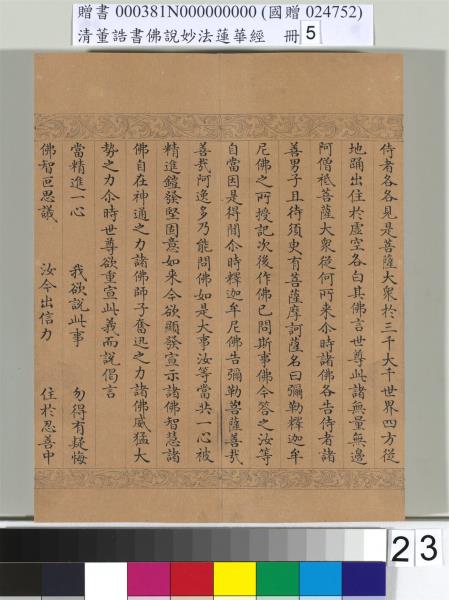 贈書 000381N000000000 (國贈 024752)
清董誥書佛說妙法蓮華經 冊 5
侍者各各見是菩薩大衆於三千大千世界四方從
地踊出住於虛空各白其佛言世尊此諸無量無邊
阿僧祇菩薩大衆從何所來尒時諸佛各告侍者諸
善男子且待須臾有菩薩摩訶薩名曰彌勒釋迦牟
尼佛之所授記次後作佛已問斯事佛今答之汝等
自當因是得聞尒時釋迦牟尼佛告彌勒菩薩善哉
善哉阿逸多乃能問佛如是大事汝等當共一心被
精進鎧發堅固意如來今欲顯發宣示諸佛智慧諸
佛自在神通之力諸佛師子奮迅之力諸佛威猛大
勢之力尒時世尊欲重宣此義而說偈言
當精進一心 我欲說此事 勿得有疑悔
佛智叵思議 汝今出信力 住於忍善中
23